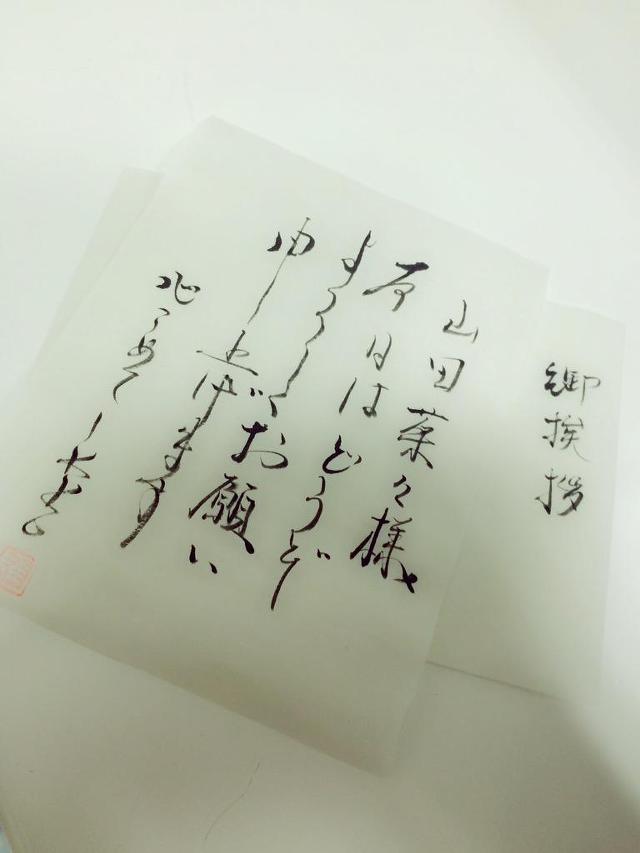 御挨拶
山田菜々様
本日はどうぞ
よろしくお願い
申し上げます
心こめて